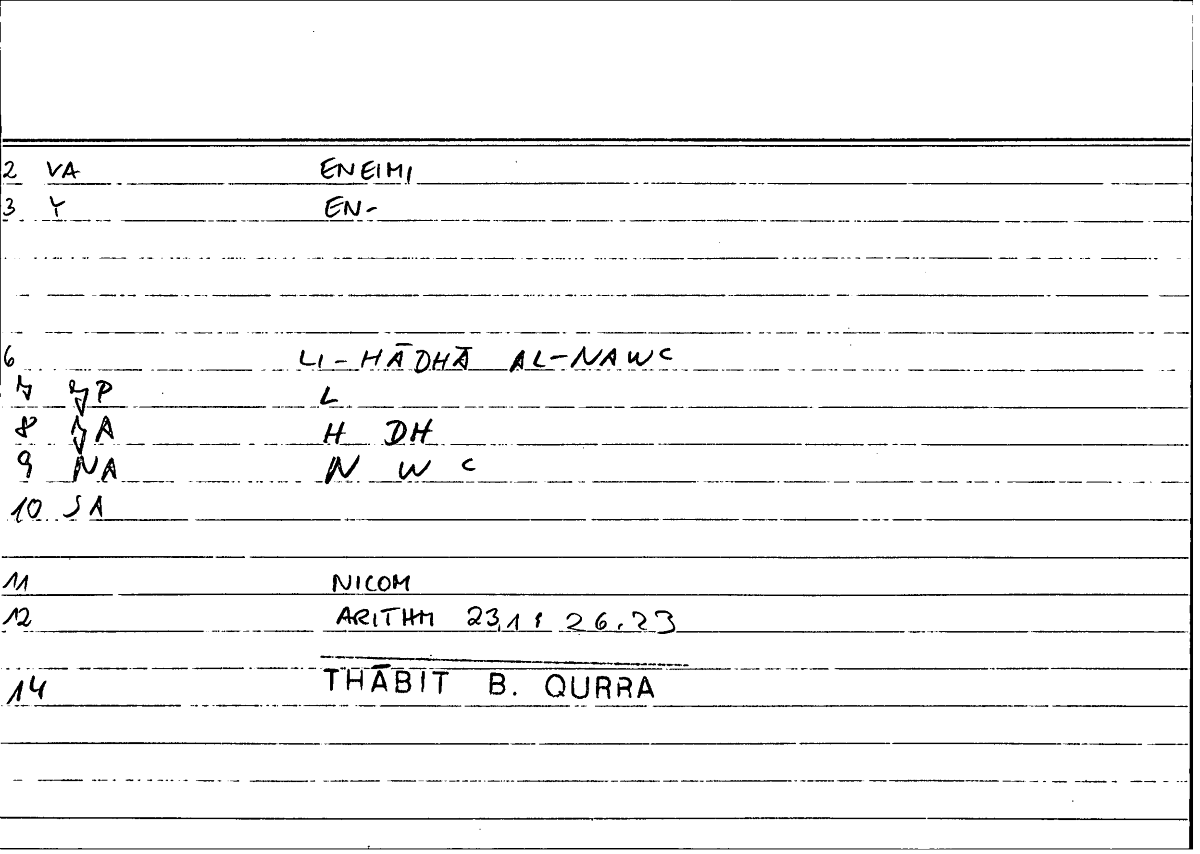 2 VA ENEIMI
3 Y EN-
6 LI-HĀDHĀ AL-NAWC
7 P L
8 A H DH
9 NA N W C
10 SA
11 NICOM
12 ARITHM 23,1: 26.23
14 THĀBIT B. QURRA